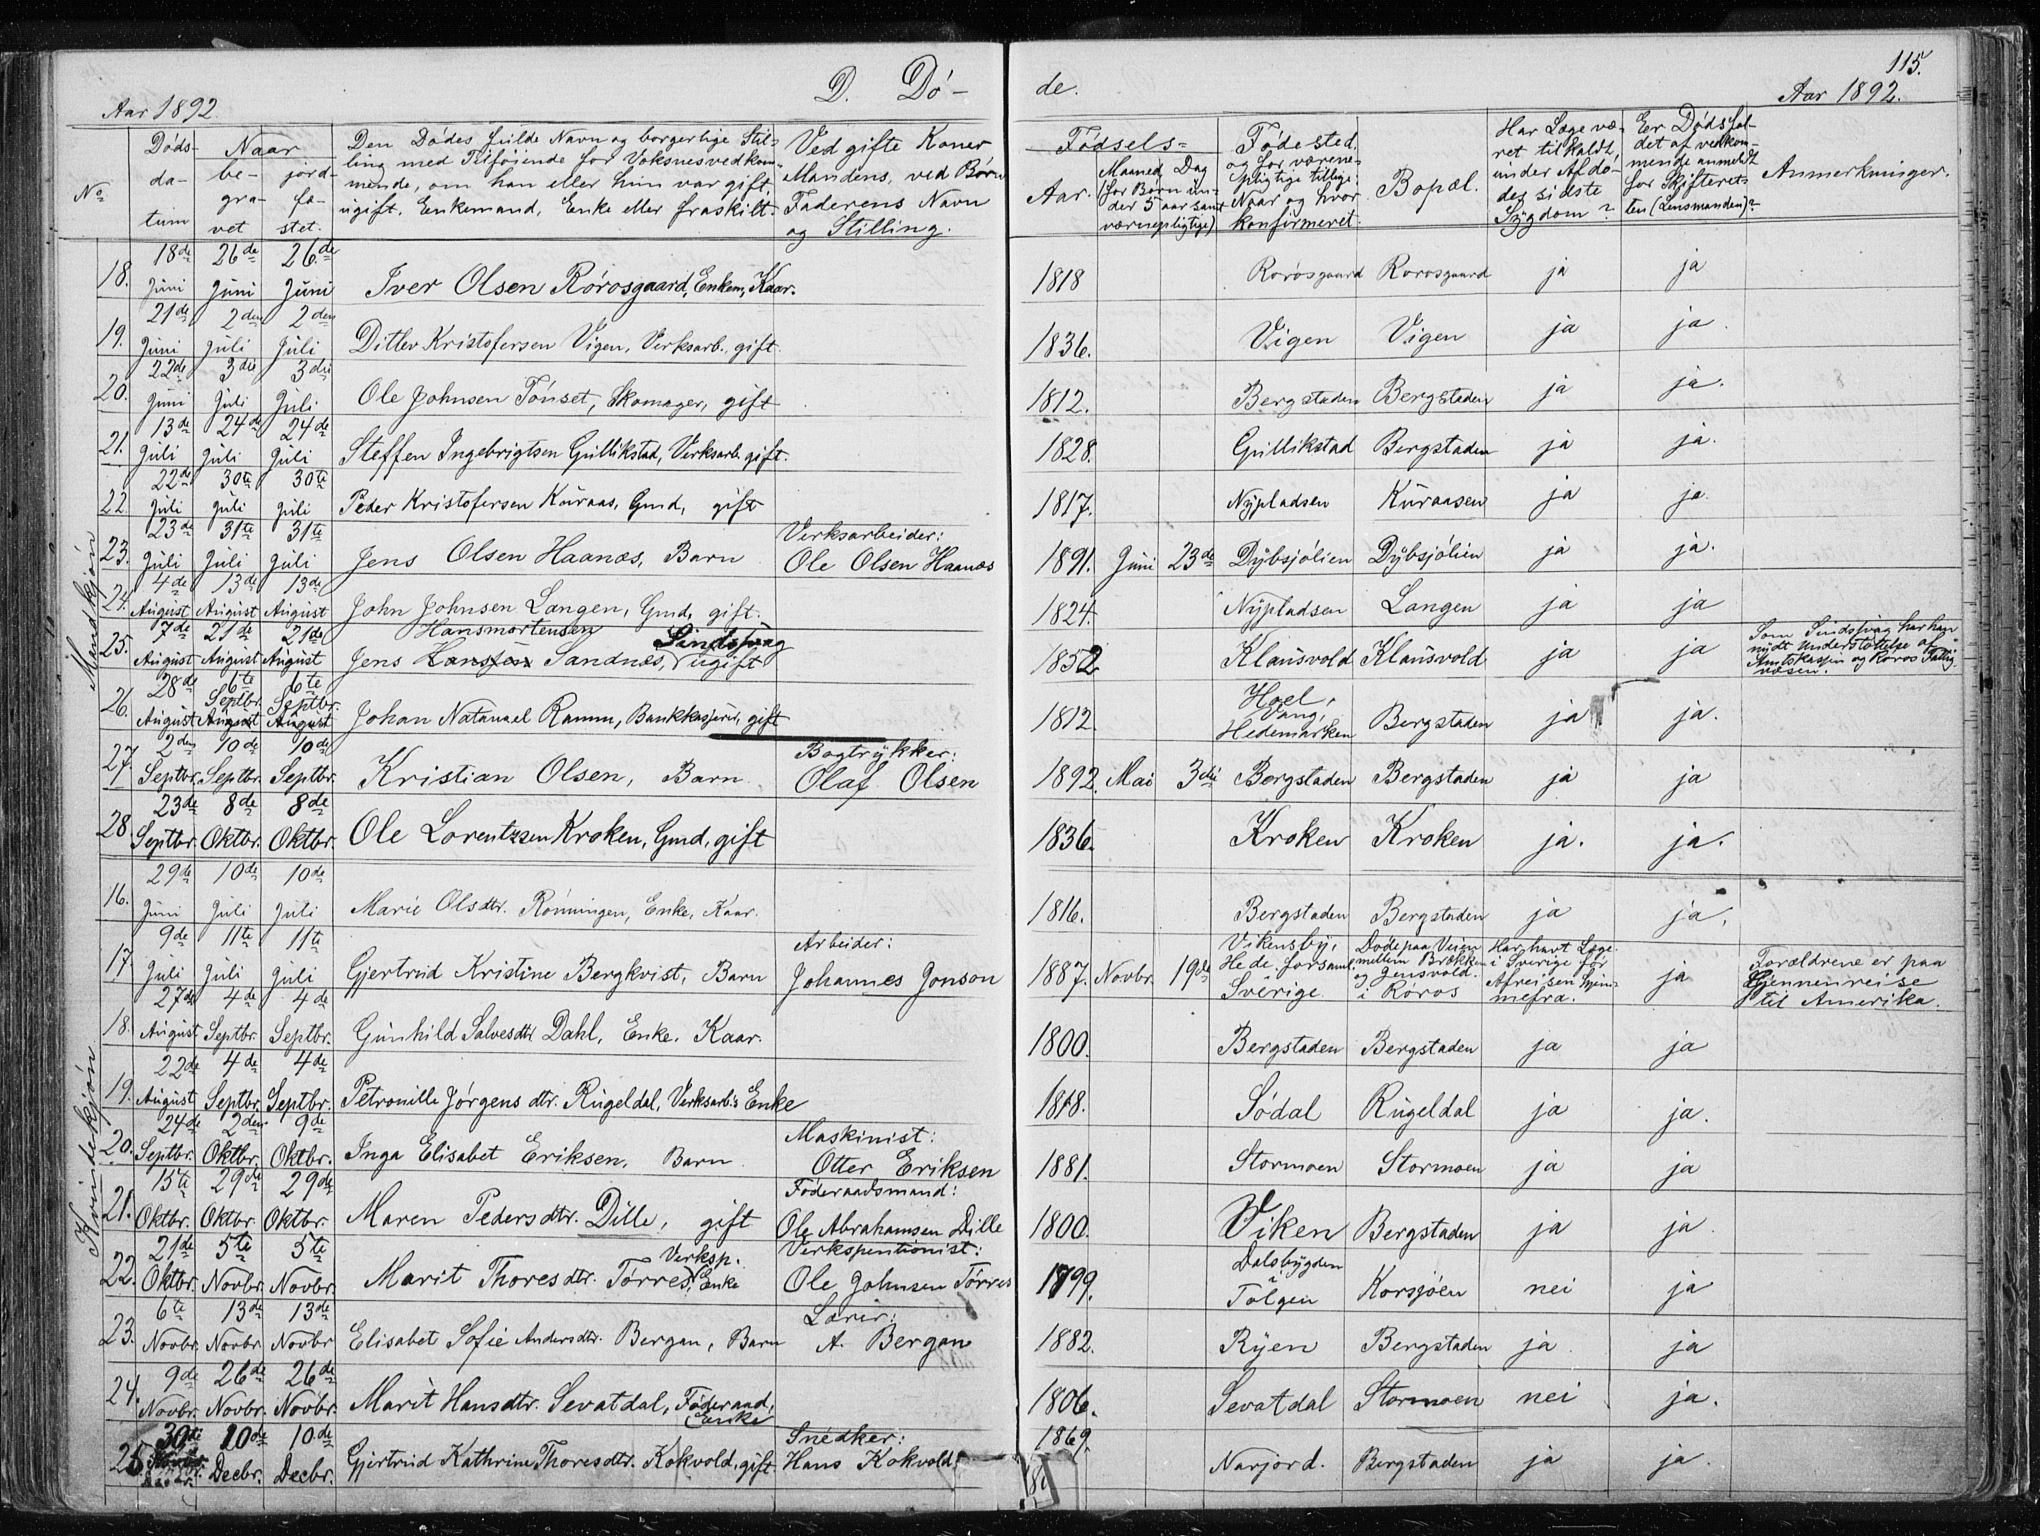 115.
Aar 1892
D. Dö-
de.
Aar 1892.
No
Døds-
da-
tum
Naar
be-
gra-
vet
jord-
fæ-
stet.
Den Dødes fulde Navn og borgerlige Stil-
ling med Tilføiende for Voksnes vedkom-
mende, om han eller hun var gift,
ugift, Enkemand, Enke eller fraskilt.
Ved gifte Koner
Mandens, ved Børn
Faderens Navn
og Stilling.
Fødsels-
Aar.
Maaned Dag
(for Børn un-
der 5 aar samt
værnepligtige)
Fødested,
og for værne-
pligtige tillige:
Naar og hvor
konfirmeret.
Bopæl.
Har Læge væ-
ret tilkaldt,
under Afdø-
des sidste
Sygdom?
Er Dødsfal-
det af vedkom-
mende anmeldt
for Skifteret-
ten (Lensmanden)?
Anmerkninger.
Mandkjøn
18. 18de Juni 26de Juni 26de Juni Iver Olsen Rørosgaard, Enkem, Kaar. 1818 Rørosgaard Rørosgaard ja ja
19. 21de Juni 2den Juli 2den Juli Ditlev Kristofersen Vigen, Verksarb., gift. 1836. Vigen Vigen ja ja.
20. 22de Juni 3die Juli 3die Juli Ole Johnsen Tønset, Skomager, gift 1812. Bergstaden Bergstaden ja ja.
21. 13de Juli 24de Juli 24de Juli Steffen Ingebrigtsen Gullikstad, Verksarb. gift. 1828. Gullikstad Bergstaden ja ja.
22. 22de Juli 30te Juli 30te Juli Peder Kristofersen Kuraas, Gmd, gift 1817. Nypladsen Kuraasen ja ja.
23. 23de Juli 31te Juli 31te Juli Jens Olsen Haanæs, Barn Verksarbeider: Ole Olsen Haanæs 1891. Juni 23de Dybsjølien Dybsjølien ja ja.
24. 4de August 13de August 13de August John Johnsen Langen, Gmd, gift. 1824. Nypladsen Langen ja ja
25. 7de August 21de August 21de August Jens Hansmortensen Sandnæs, Sindssvag ugift 1852 Klausvold Klausvold ja ja Som Sindssvag har han
nydt Understøttelse af
Amtskassen og Røros Fattig-
væsen.
26. 28de August 6te Septbr. August 6te Septbr. August Johan Natanael Ramm, Bankkasserer, gift 1812 Hoel, Vang, Hedemarken Bergstaden ja ja.
27. 2den Septbr. 10de Septbr. 10de Septbr. Kristian Olsen, Barn Bogtrykker: Olaf Olsen 1892. Mai 3die Bergstaden Bergstaden ja ja
28. 23de Septbr. 8de Oktbr. 8de Oktbr. Ole Lorentzsen Kroken, Gmd, gift 1836. Kroken Kroken ja. ja.
Kvindekjøn
16. 29de Juni 10de Juli 10de Juli Marie Olsdtr. Rønningen, Enke, Kaar. 1816. Bergstaden Bergstaden ja ja.
17. 9de Juli 11te Juli 11te Juli Gjertrud Kristine Bergkvist, Barn Arbeider: Johannes Jonson 1887. Novbr. 19de Vikensby, Hede forsaml. Sverige Døde paa Veien mellem Brækken og Jensvold i Røros Har havt Læge i Sverige før Afreisen hjem- mefra. ja Forældrene er paa
Gjennemreise
til Amerika.
18. 27de August 4de Septbr. 4de Septbr. Gunhild Salvesdtr Dahl, Enke, Kaar. 1800. Bergstaden Bergstaden ja ja
19. 22de August 4de Septbr. 4de Septbr. Petronille Jørgensdtr. Rugeldal, Verksarb's Enke 1818. Sødal Rugeldal ja ja.
20. 24de Septbr. 2den Oktbr. 9de Oktbr. Inga Elisabet Eriksen, Barn Maskinist: Otter Eriksen 1881. Stormoen Stormoen ja ja
21. 15te Oktbr. 29de Oktbr. 29de Oktbr. Maren Pedersdtr. Dille, gift Føderaadsmand: Ole Abrahamsen Dille 1800. Viken Bergstaden ja ja.
22. 21de Oktbr. 5te Novbr. 5te Novbr. Marit Thoresdtr. Tørres, Verksp. Enke Verkspentionist: Ole Johnsen Tørres 1799. Dalsbygden i Tolgen Korsjøen nei ja
23. 6te Novbr. 13de Novbr. 13de Novbr Elisabet Sofie Andersdtr. Bergan, Barn Lærer: A. Bergan 1882. Ryen Bergstaden ja. ja
24. 9de Novbr. 26de Novbr. 26de Novbr. Marit Hansdtr. Sevatdal, Føderaad, Enke 1806. Sevatdal Stormoen nei ja.
25 30te 10de Decbr. 10de Decbr. Gjertrud Kathrine Thoresdtr. Kokvold, gift. Snedker: Hans Kokvold 1869. Narjord. Bergstaden ja ja.